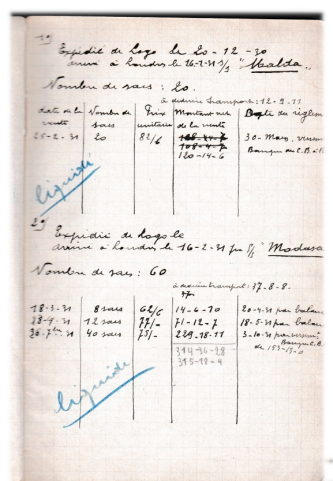 1º
Expédié de Logo le 20-12-30
arrivé à Londres le 16-2-31 S/S "Malda"
Nombre de sacs : 20.
à déduire transport : 12-9-11
date de la vente Nombre de sacs Prix unitaire Montant net de la vente Date du règlem
25-2-31 20 82/6 108-4-7 30-Mars, virem
120-14-6 Banque du C.B. à
liquidé
2º
Expédié de Logo le
arrivé à Londres le 16-2-31 par S/S "Modasa
Nombre de sacs : 60
à déduire transport : 37-8-8-
18-3-31 8 sacs 62/6 14-6-10 20-4-31 par balanc
28-4-31 12 sacs 77/- 71-12-7 18-5-31 par balanc
30-7-31 40 sacs 75/- 229-18-11 3-10-31 par
Banque C.B.
de 153-15-0
314-36-28
315-18-4
liquidé